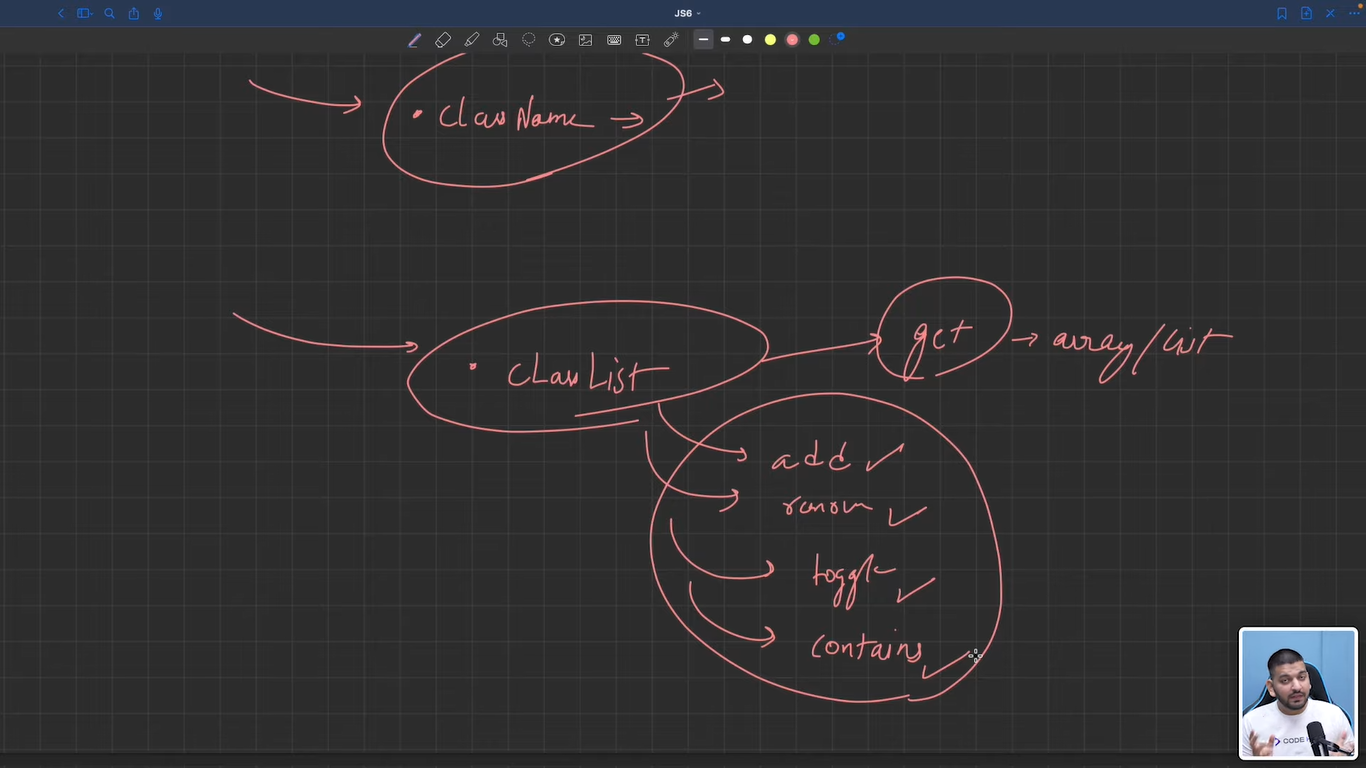 JS6
• ClassName →
• classList
get → array/list
add ✓
remove ✓
toggle ✓
contains ✓
CODE